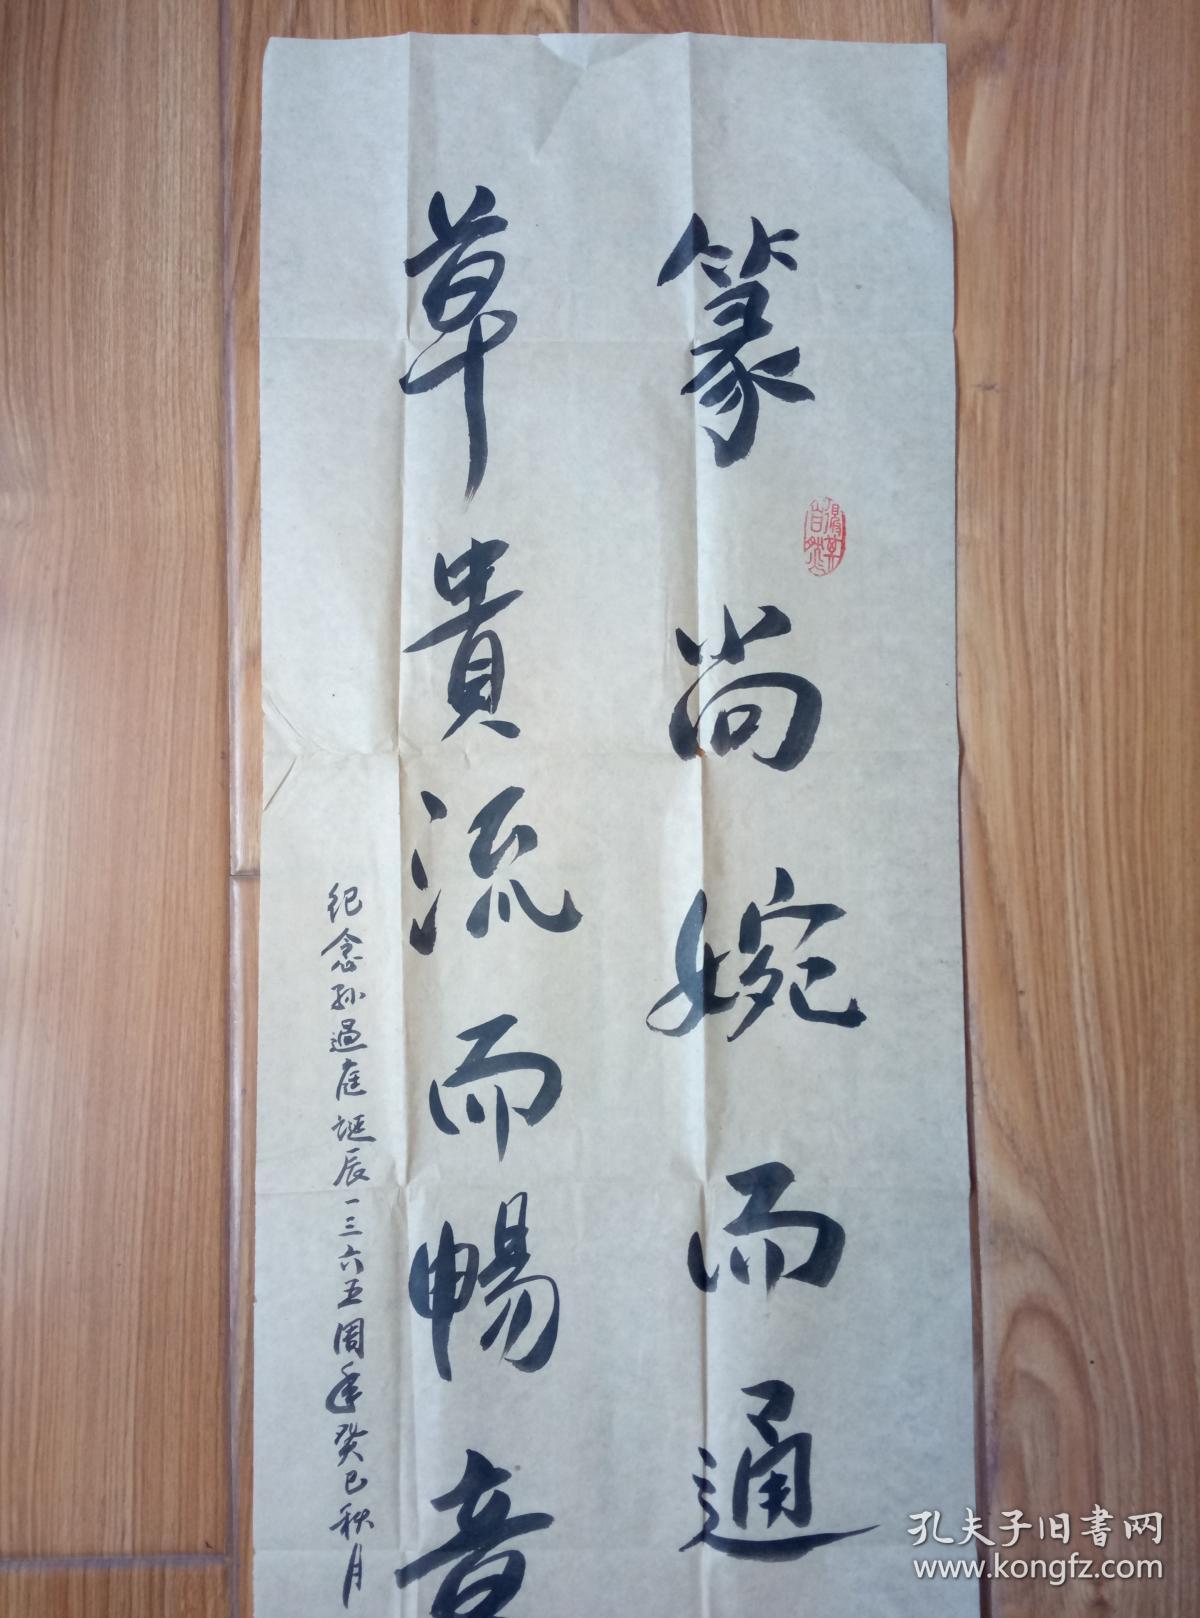 篆尚婉而通
草貴流而暢音
纪念孙過庭誕辰一三六五周年癸巳秋月
孔夫子旧書网
www.kongfz.com